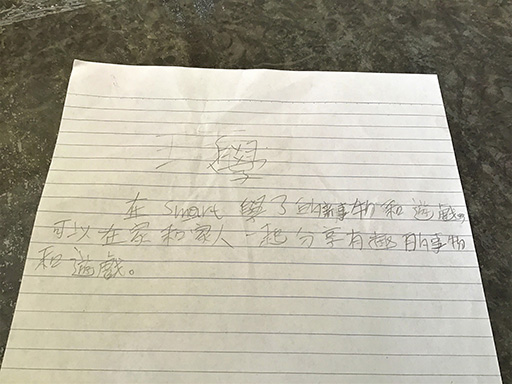 學
在 smart 學了的事物和遊戲,
可以在家和家人一起分享有趣的事物
和遊戲。